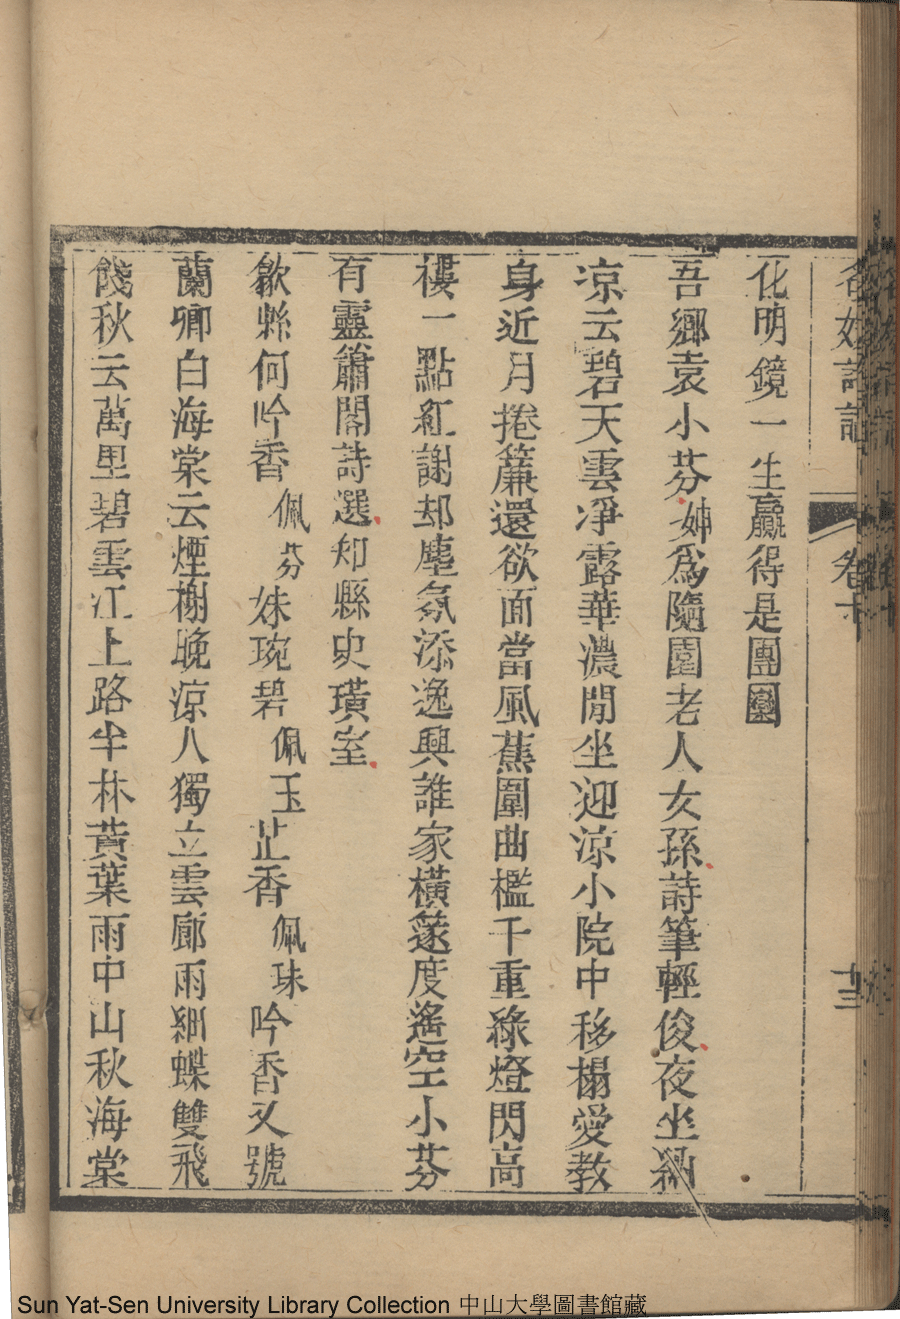 化明鏡一生贏得是團圞
吾鄉袁小芬妽為隨園老人女孫詩筆輕俊夜坐納
凉云碧天雲凈露華濃閒坐迎凉小院中移榻愛教
身近月捲簾還欲面當風蕉圍曲檻千重綠燈閃高
樓一點紅謝却塵氛添逸興誰家橫篴度遙空小芬
有靈簫閣詩選知縣史璜室
歙縣何吟香佩芬妹琬碧佩玉芷香佩珠吟香又號
蘭卿白海棠云煙榭晚凉人獨立雲廊雨細蝶雙飛
餞秋云萬里碧雲江上路半林黃葉雨中山秋海棠
卷十
十三
Sun Yat-Sen University Library Collection 中山大學圖書館藏